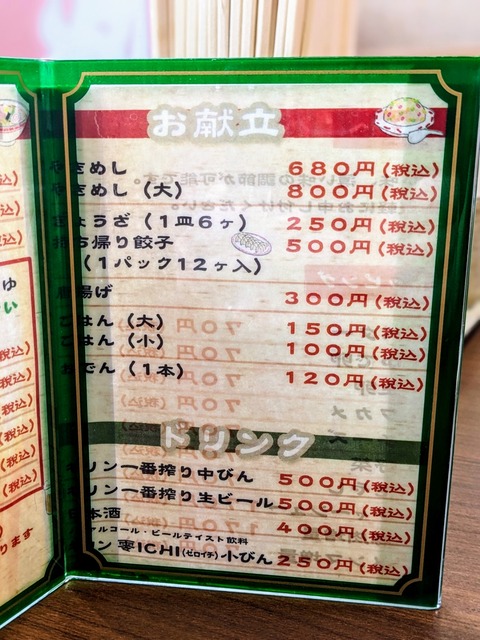 お献立
やきめし 680円(税込)
やきめし(大) 800円(税込)
ぎょうざ(1皿6ヶ) 250円(税込)
お持ち帰り餃子 500円(税込)
(1パック12ヶ入)
唐揚げ 300円(税込)
ごはん(大) 150円(税込)
ごはん(小) 100円(税込)
おでん(1本) 120円(税込)
ドリンク
キリン一番搾り中びん 500円(税込)
キリン一番搾り生ビール 500円(税込)
日本酒 400円(税込)
アルコール・ビールテイスト飲料
キリン零ICHI(ゼロイチ)小びん 250円(税込)